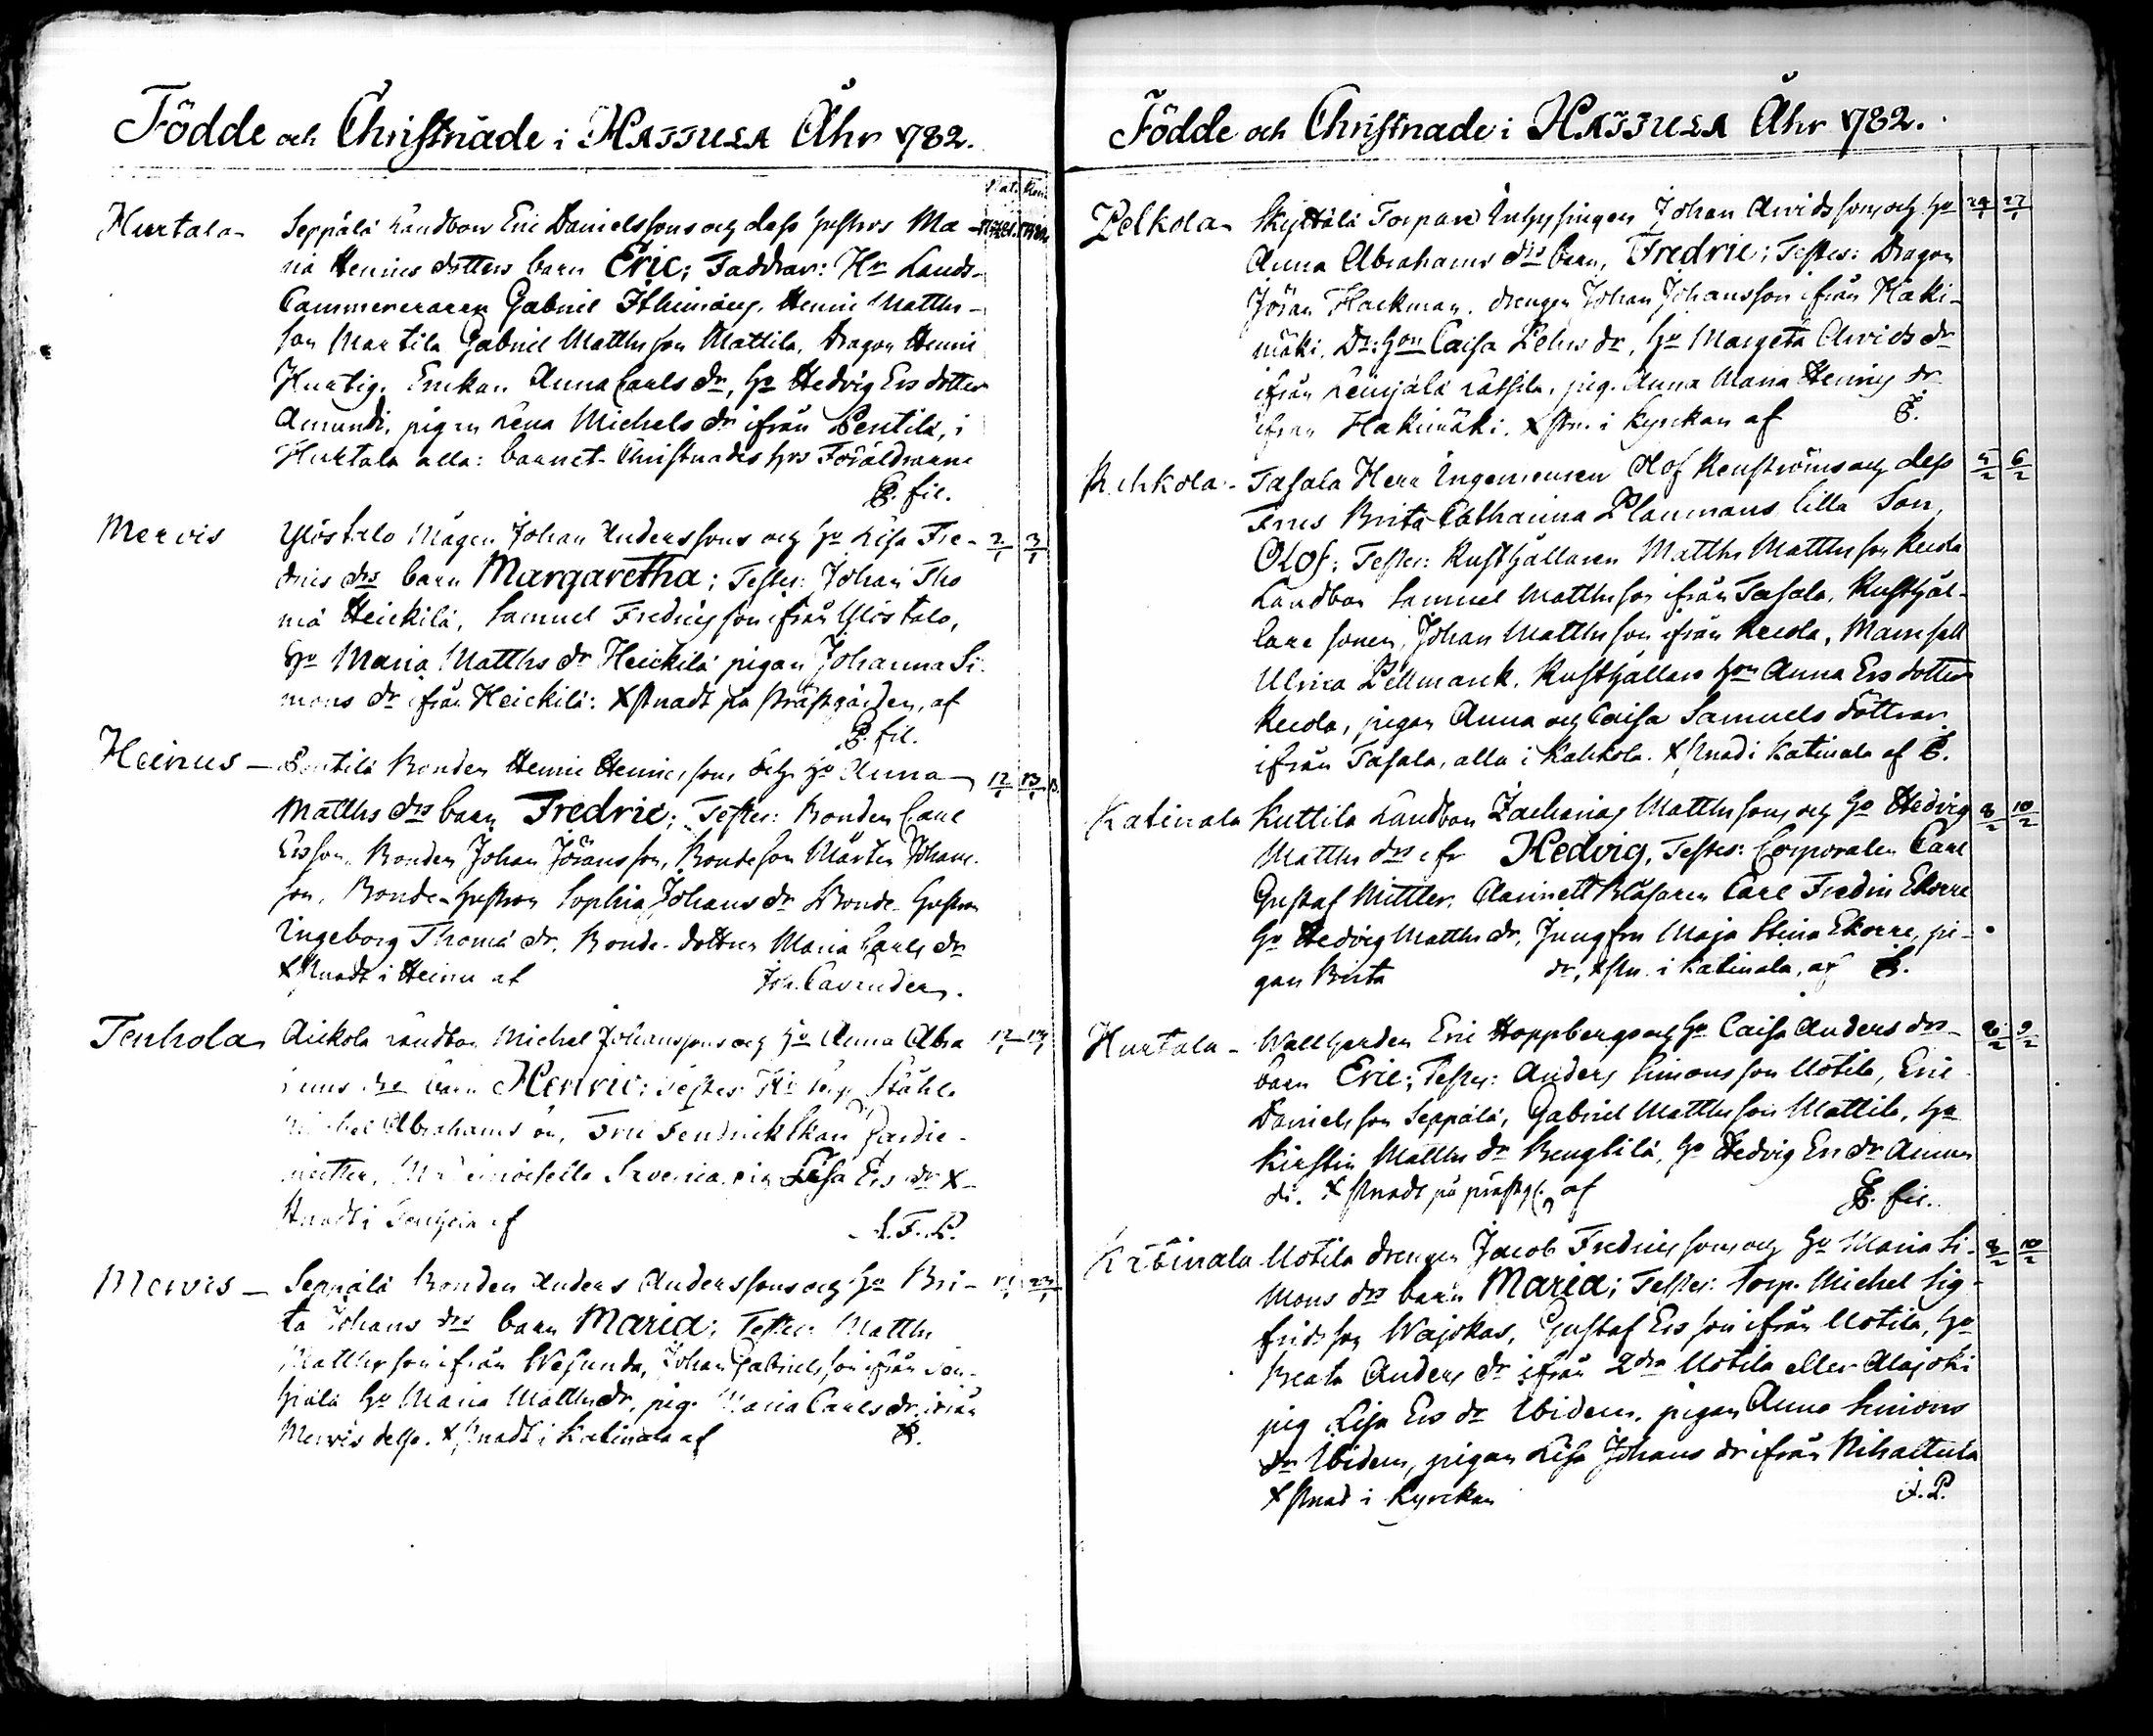 Födde och Christnade i HATTULA Åhr 1782.
Nat. Ren.
Hurtala - Seppälä Landbon Eric Danielssons och dess hustrus Ma-
ria Henrics dotters barn Eric; Faddrar: Hr Lands-
Camereraren Gabriel Henric Matths-
son Martila Gabriel Matthsson Mattila, Dragon Henric
Hurtig, Enckan Anna Carls dr, ho Hedvig Ers dotter
Amundi, pigan Lena Michels dr ifrån Pentilä, i
Hurtala alla: barnet Christnades hos Föräldrarne
fil.
Mervis Ylöstalo Mågen Johan Anderssons och ho Lisa Fre- 2/1 3/1
drics drs barn Margaretha; Testes: Johan Tho
mä Heickilä, Samuel Fredricsson ifrån Ylöstalo,
ho Maria Matths dr Heickilä pigan Johanna Si-
mons dr ifrån Heickilä: Xstnadt på Prästgården, af
fil.
Heinus - Pentilä Bonden Henric Henricssons och ho Anna 12/1 13/1
Matths drs barn Fredric; Testes: Bonden Carl
Ersson, Bonden Johan Jöransson, Bondeson Mårten Johans-
son, Bonde-hustron Sophia Johans dr Bonde-hustron
Ingeborg Thomä dr, Bonde-dottren Maria Carls dr
Xstnadt i Heinus af Joh. Cavander.
Tenhola Landbon Michel Johanssons och ho Anna Abra
hams drs barn Henric; Testes: Hr Ståhle
Abrahams son, Fru
Lisa Ers dr X-
stnadt i af
Mervis - Seppälä Bonden Anders Anderssons och ho Bri-
ta Johans drs barn Maria; Testes: Matths
Matthsson ifrån Wesunda, Johan Gabrielsson ifrån
ho Maria Matths dr, pig. Maria Carls dr ifrån
Mervis Xstnadt i Katinala af
Födde och Christnade i HATTULA Åhr 1782.
Pelkola - Skyttälä Torpare Inhysingen Johan Arvidssons och ho 24/1 27/1
Anna Abrahams drs barn, Fredric; Testes: Dragon
Jöran Hackman, drengen Johan Johansson ifrån Haki-
mäki, Dr: hon Caisa Pehrs dr, ho Margeta Arvids dr
ifrån Lassila, pig. Anna Maria Henrics dr
ifrån Hakimäki. Xstn. i kyrckan af
Tasala Herr Ingenieuren Olof Renströms och dess 5/2 6/2
Frus Brita Catharina Planmans lilla Son,
Olof; Testes: Rusthållaren Matths Matthsson
Landbon Samuel Matthsson ifrån Tasala, Rusthål-
lare sonen, Johan Matthsson ifrån Mamsell
Ulrica Pellmarck, Rusthållars hon Anna Ers dotter
pigan Anna och Caisa Samuels döttrar
ifrån Tasala, alla i Xstnad i Katinala af
Katinala Kuttila Landbon Zacharias Matthssons och ho Hedvig 8/2 10/2
Matths drs Hedvig, Testes: Corporalen Carl
Gustaf Mittler, Clarinett Blåsaren Carl Fredric Ekorre
ho Hedvig Matths dr, Jungfru Maja Stina Ekorre, pi-
gan Brita dr, Xstn. i Katinala, af
Hurtala - Eric Hoppbergs och ho Caisa Anders drs
barn Eric; Testes: Anders Simonsson Uotila, Eric
Danielsson Seppälä, Gabriel Matthsson Mattila, ho
Kirstin Matths dr Bengtilä, ho Hedvig Ers dr Amun
di. Xstnadt på prästg. af
fil.
Katinala Uotila drengen Jacob Fredricssons och ho Maria Si-
mons drs barn Maria; Testes: Torp. Michel Sig-
fridsson Wajokas, Gustaf Ersson ifrån Uotila, ho
Beata Anders dr ifrån 2dra Uotila eller Alajoki
pig Lisa Ers dr Ibidem, pigan Anna Simons
dr Ibidem, pigan Lisa Johans dr ifrån Nihattula
Xstnad i Kyrckan